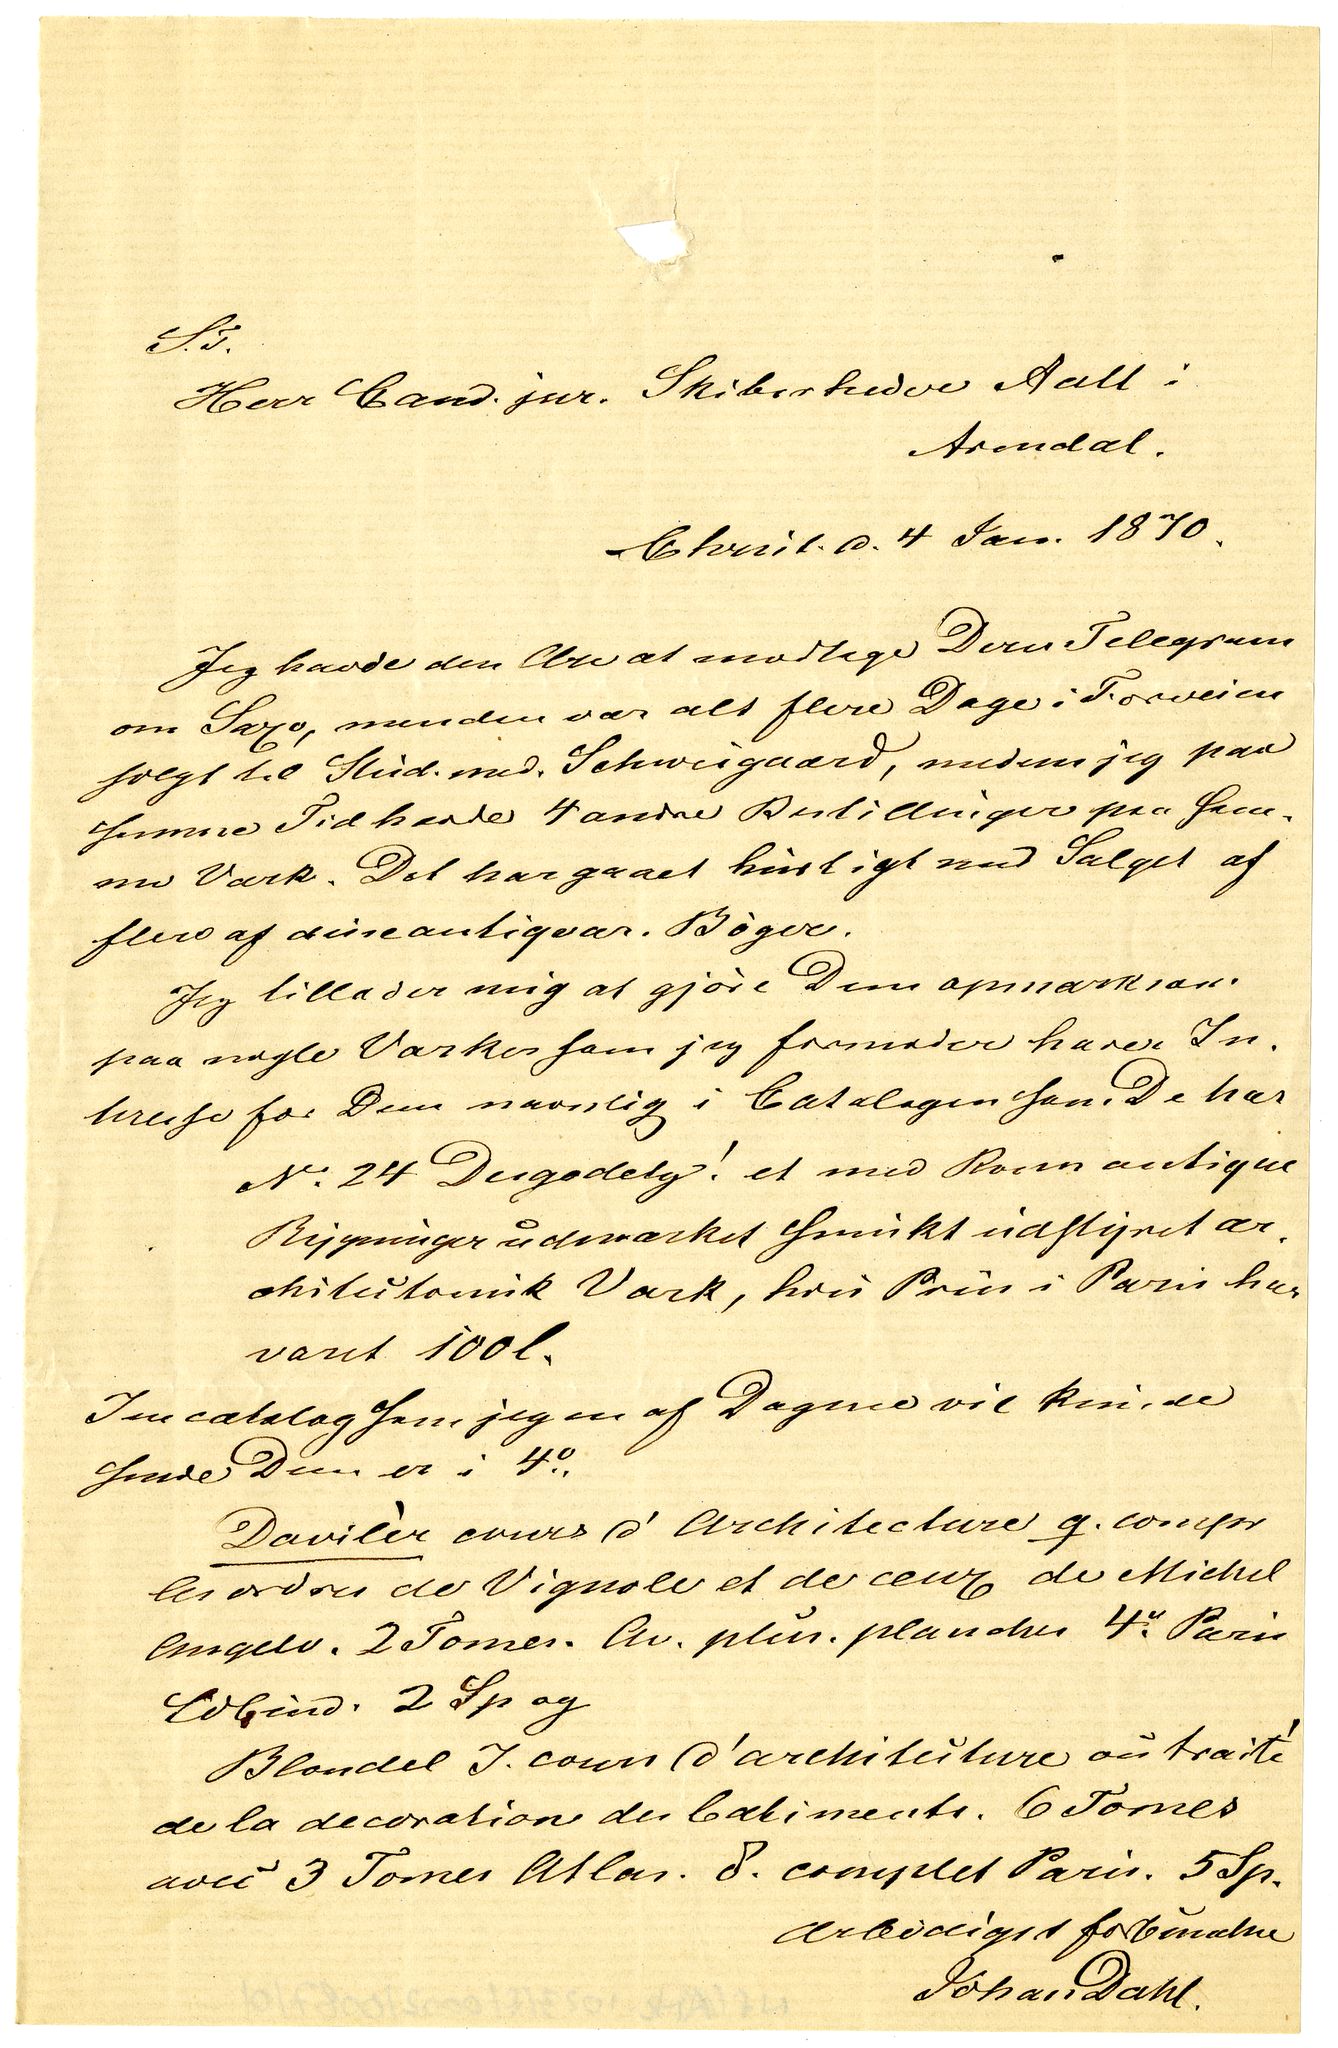 S.T.
Herr Cand. jur. Skibsrheder Aall i
Arendal.
Christ. d. 4 Jan. 1870.
Jeg havde den Ære at modtage Deres Telegram
om Saxo, men den var alt flere Dage i Forveien
solgt til Stud. med. Schweigaard, medens jeg paa
samme Tid havde 4 andre Bestillinger paa sam-
me Værk. Det har gaaet hurtigt med Salget af
flere af disse antiqvar. Bøger.
Jeg tillader mig at gjøre Dem opmærksom
paa nogle Værker som jeg formoder have In-
teresse for Dem navnlig i Catalogen som De har
No. 24 Desgodetz! et med Roms antique
Bygninger udmærket smukt udstyret ar-
chitectonisk Værk, hvis Priis i Paris har
været 100 l.
I en catalog som jeg en af Dagene vil kunde
sende Dem er i 4o.
Davilèr cours d'Architecture q. compr
les ordres de Vignole et de ceux de Michel
Angelo. 2 Tomes. Av. plus. planches 4o. Paris
Ldbind. 2 Sp og
Blondel J. cours d'architecture ou traité
de la decoration des batiments. 6 Tomes
avec 3 Tomes Atlas. 8. complet Paris. 5 Sp.
Ærbødigst forbundne
Johan Dahl.